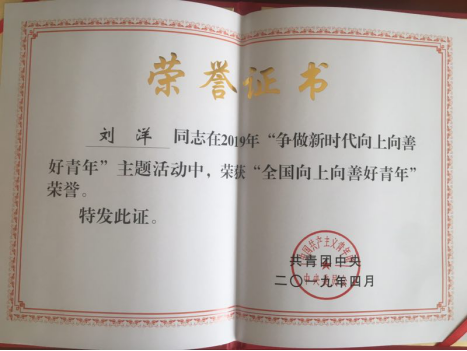 荣誉证书
刘 洋 同志在2019年“争做新时代向上向善
好青年”主题活动中，荣获“全国向上向善好青年”
荣誉。
特发此证。
共青团中央
二〇一九年四月